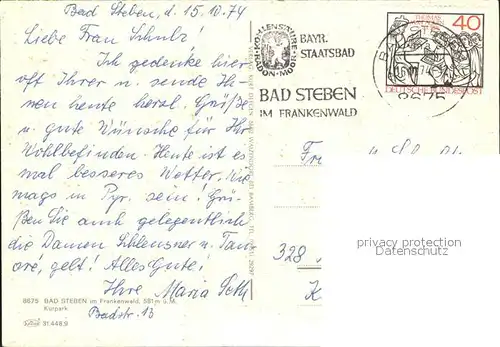 Bad Steben, d. 15.10.74
Liebe Frau Schulz!
Ich gedenke hier
oft Ihrer u. sende Ih-
nen heute herzl. Grüße
u. gute Wünsche für Ihr
Wohlbefinden. Heute ist es
mal besseres Wetter. Wie
mags in Pyr. sein! Grü-
ßen Sie auch gelegentlich
die Damen
gelt! Alles Gute!
Ihre Maria
Badstr. 13
8675 BAD STEBEN im Frankenwald, 581 m ü. M.
Kurpark
31.448,9
BAYR.
STAATSBAD
BAD STEBEN
IM FRANKENWALD
40
DEUTSCHE BUNDESPOST
8675
328
privacy protection
Datenschutz